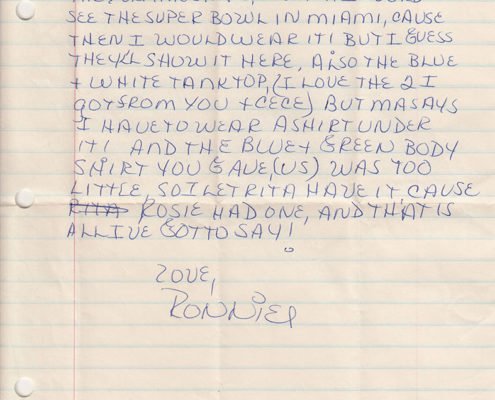 SEE THE SUPER BOWL IN MIAMI, CAUSE
THEN I WOULD WEAR IT! BUT I GUESS
THEY'LL SHOW IT HERE, ALSO THE BLUE
+ WHITE TANKTOP, (I LOVE THE 2 I
GOT FROM YOU + CECE) BUT MA SAYS
I HAVE TO WEAR A SHIRT UNDER
IT! AND THE BLUE + GREEN BODY
SHIRT YOU GAVE, (US) WAS TOO
LITTLE, SO I LET RITA HAVE IT, CAUSE
RITA ROSIE HAD ONE, AND THAT IS
ALL I'VE GOT TO SAY!
LOVE,
RONNIE